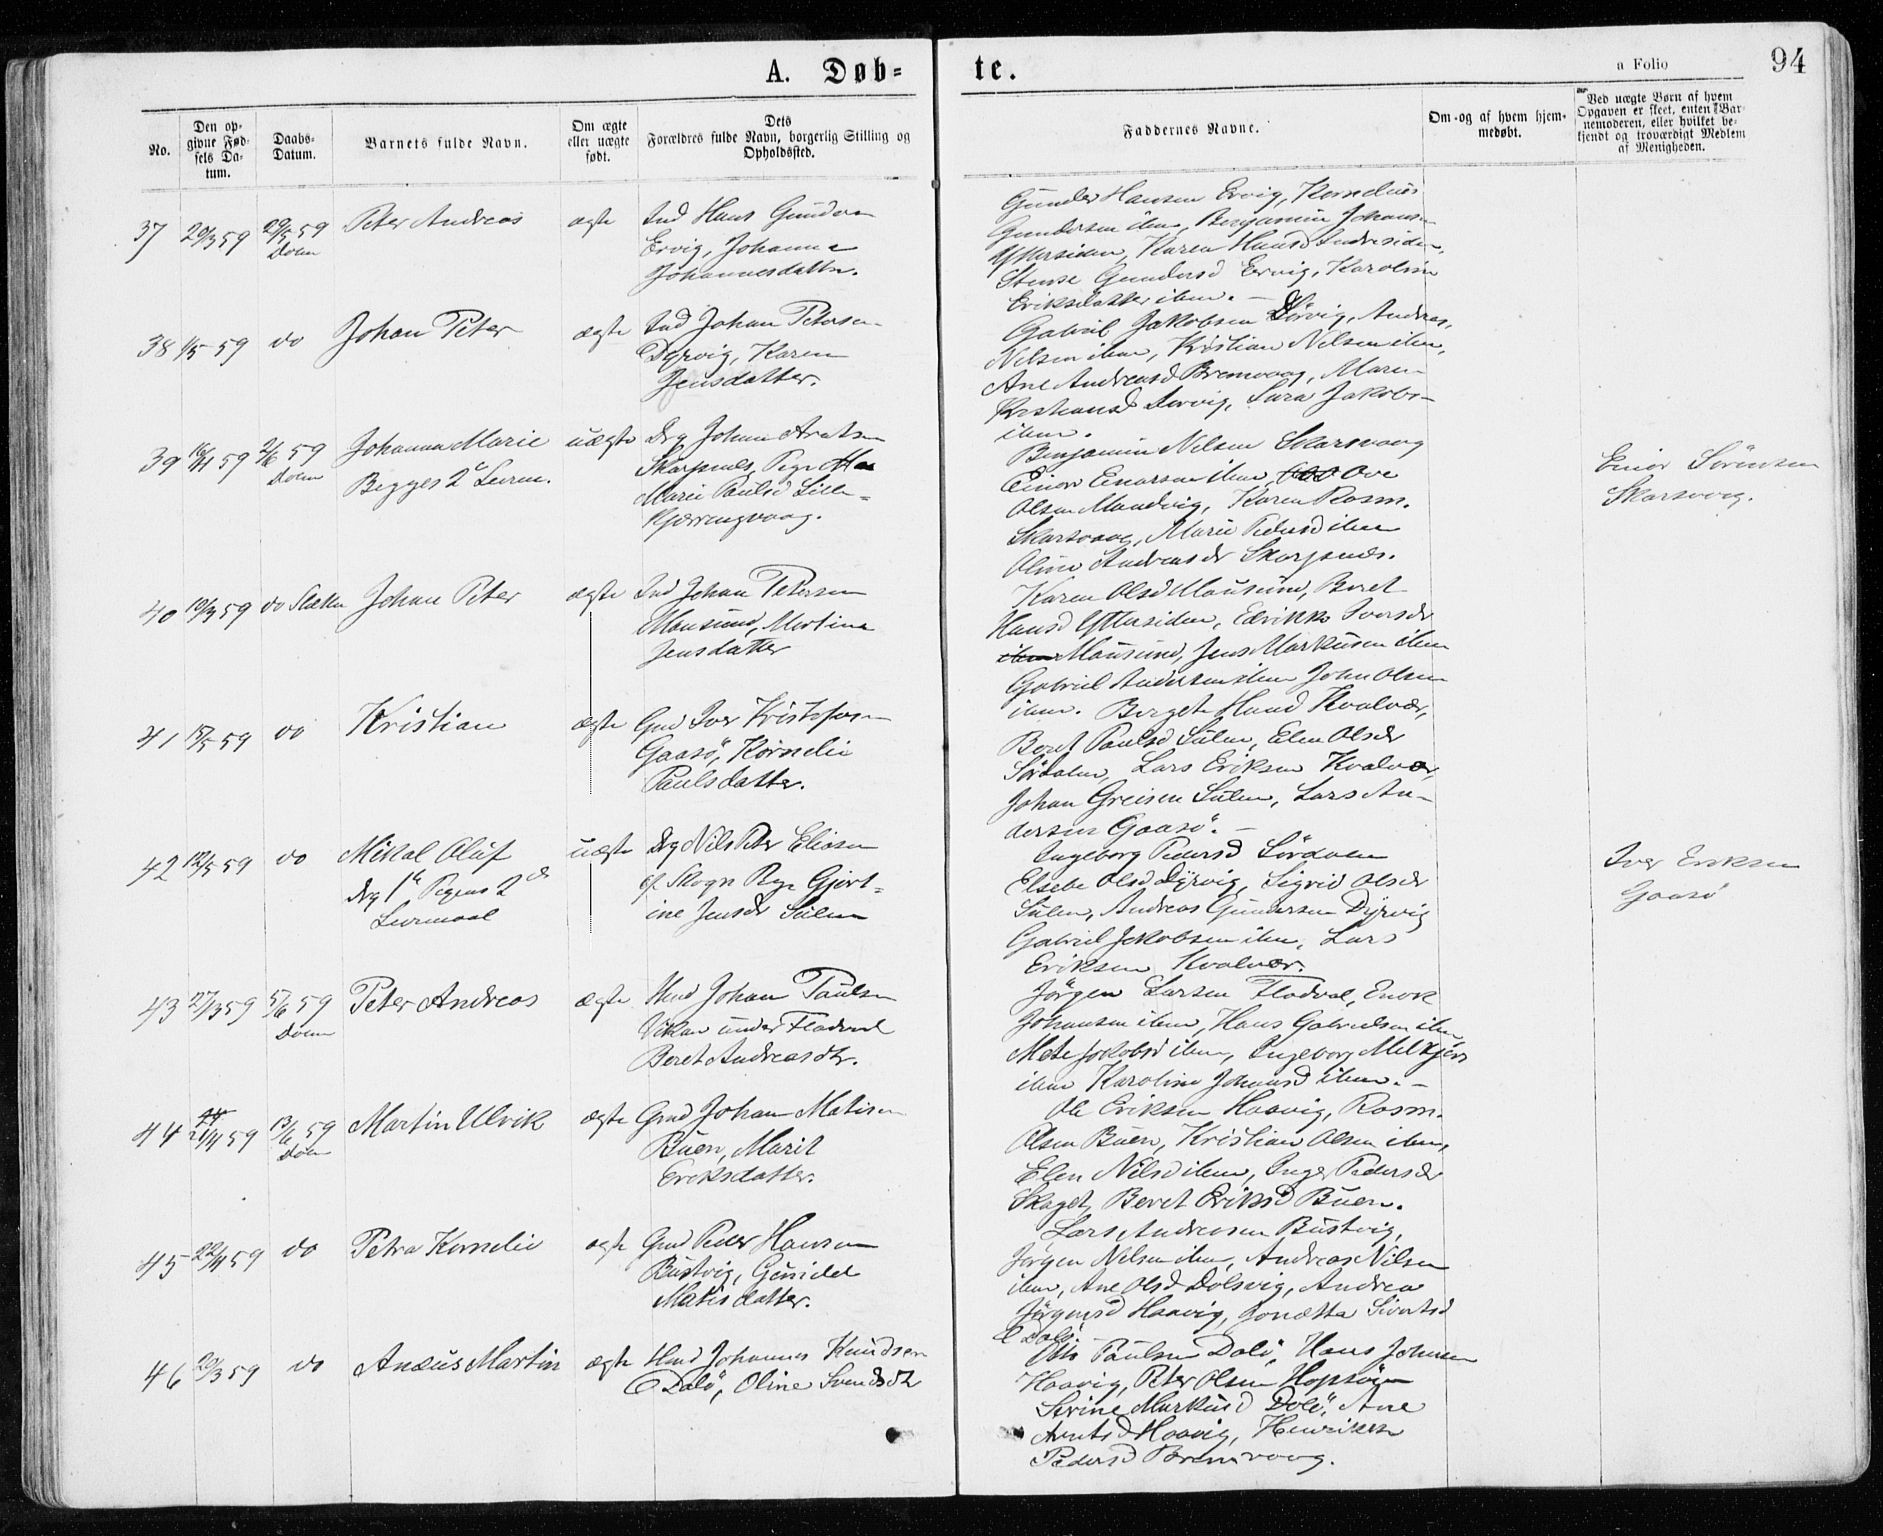 A. Døb=
te.
a Folio
94
No.
Den op-
givne Fød-
sels Da-
tum.
Daabs-
Datum.
Barnets fulde Navn.
Om ægte
eller uægte
født.
Dets
Forældres fulde Navn, borgerlig Stilling og
Opholdssted.
Faddernes Navne.
Om- og af hvem hjem-
medøbt.
Ved uægte Børn af hvem
Opgaven er skeet, enten Bar-
nemoderen, eller hvilket be-
kjendt og troværdigt Medlem
af Menigheden.
37 20/3 59 29/5 59 Peter Andreas ægte Ind Hans Gundersen
Doen
Ervig, Johanna
Johannesdatter.
Gunder Hansen Ervig, Kornelius
Gundersen ibm, Benjamin Johans-
Yttersiden, Karen Hansd Indresiden,
Stense Gundersd Ervig, Karoline
Eriksdatter ibm. —
38 1/5 59 do Johan Peter ægte Ind Johan Petersen
Dyrvig, Karen
Jensdatter.
Gabriel Jakobsen Dyrvig, Andreas
Nilsen ibm, Kristian Nilsen ibm,
Ane Andreasd Bremvaag, Maren
Kristiansd Dyrvig, Sara Jakobs-
ibm.
39 59 2/6 59 Johanna Marie uægte Drg Johan Arntsen
Doen
Begges 2t Leierm.
Skarpnes, Pige
Marie Paulsd Lille-
Kjærringvaag.
Benjamin Nilsen Skarsvaag
Einor Einarsen ibm, Ove
Olsen Mandvig, Karen Rasm.
Skarsvaag, Marie Pedersd ibm
Oline Andreasdr Skarpnes.
Einor Sörensen
Skarsvaag.
40 19/3 59 do Johan Peter ægte Ind Johan Petersen
Mausund, Martine
Jensdatter
Karen Olsd Mausund, Beret
Hansd Yttersiden, Edrikke Iversdr
Mausund, Jens Markusen ibm
Gabriel Andersen ibm John Olsen
ibm.
41 15/5 59 do Kristian ægte Gmd Iver Kristofersen
Gaasö, Kornelia
Paulsdatter.
Berget Hansd Kvalvær,
Beret Paulsd Sulen, Elen Olsdr
Sördalen, Lars Eriksen Kvalvær,
Johan Greisen Sulen, Lars An-
dersen Gaasö. —
42 12/5 59 do Mikal Oluf uægte Drg Nils Peter Eliasen
Drg 1te Pigens 2det
Leiermaal
af Skogn Pige Gjert-
ine Jensdr Sulen
Ingeborg Pedersd Sördalen
Elsebe Olsd Dyrvig, Sigrid Olsdr
Sulen, Andreas Gundersen Dyrvig
Gabriel Jakobsen ibm, Lars
Eriksen Kvalvær.
Iver Eriksen
Gaasö
43 27/3 59 5/6 59 Peter Andreas ægte Hmd Johan Paulsen
Doen
Vikan under Fladval
Beret Andreasdtr.
Jörgen Larsen Fladval, Enok
Johansen ibm, Hans Gabrielsen ibm
Mete Jakobsd ibm, Ingeborg Melkjørs
ibm Karoline Johansd ibm. —
44 21/4 59 13/6 59 Martin Ulvik ægte Gmd Johan Matisen
Doen
Buen, Marit
Eriksdatter.
Ole Eriksen Haavig, Rasm.
Olsen Buen, Kristian Olsen ibm,
Elen Nilsd ibm, Inger Pedersdr
Skaget, Beret Eriksd Buen.
45 22/4 59 do Petra Kornelie ægte Gmd Peder Hansen
Bustvig, Gunild
Matisdatter.
Lars Andreasen Bustvig,
Jörgen Nilsen ibm, Andreas Nilsen
ibm, Ane Olsd Dolsvig, Andrea
Jörgensd Haavig, Jonetta Sivertsd
Dolö.
46 20/3 59 do Anæus Martin ægte Hmd Johannes Knudsen
Dalö, Oline Svendsdtr
Otto Paulsen Dolö, Hans Johnsen
Haavig, Peter Olsen Hopsöen
Serine Markusd Dolö, Ane
Arntsd Haavig, Henrikke
Pedersd Bremvaag.